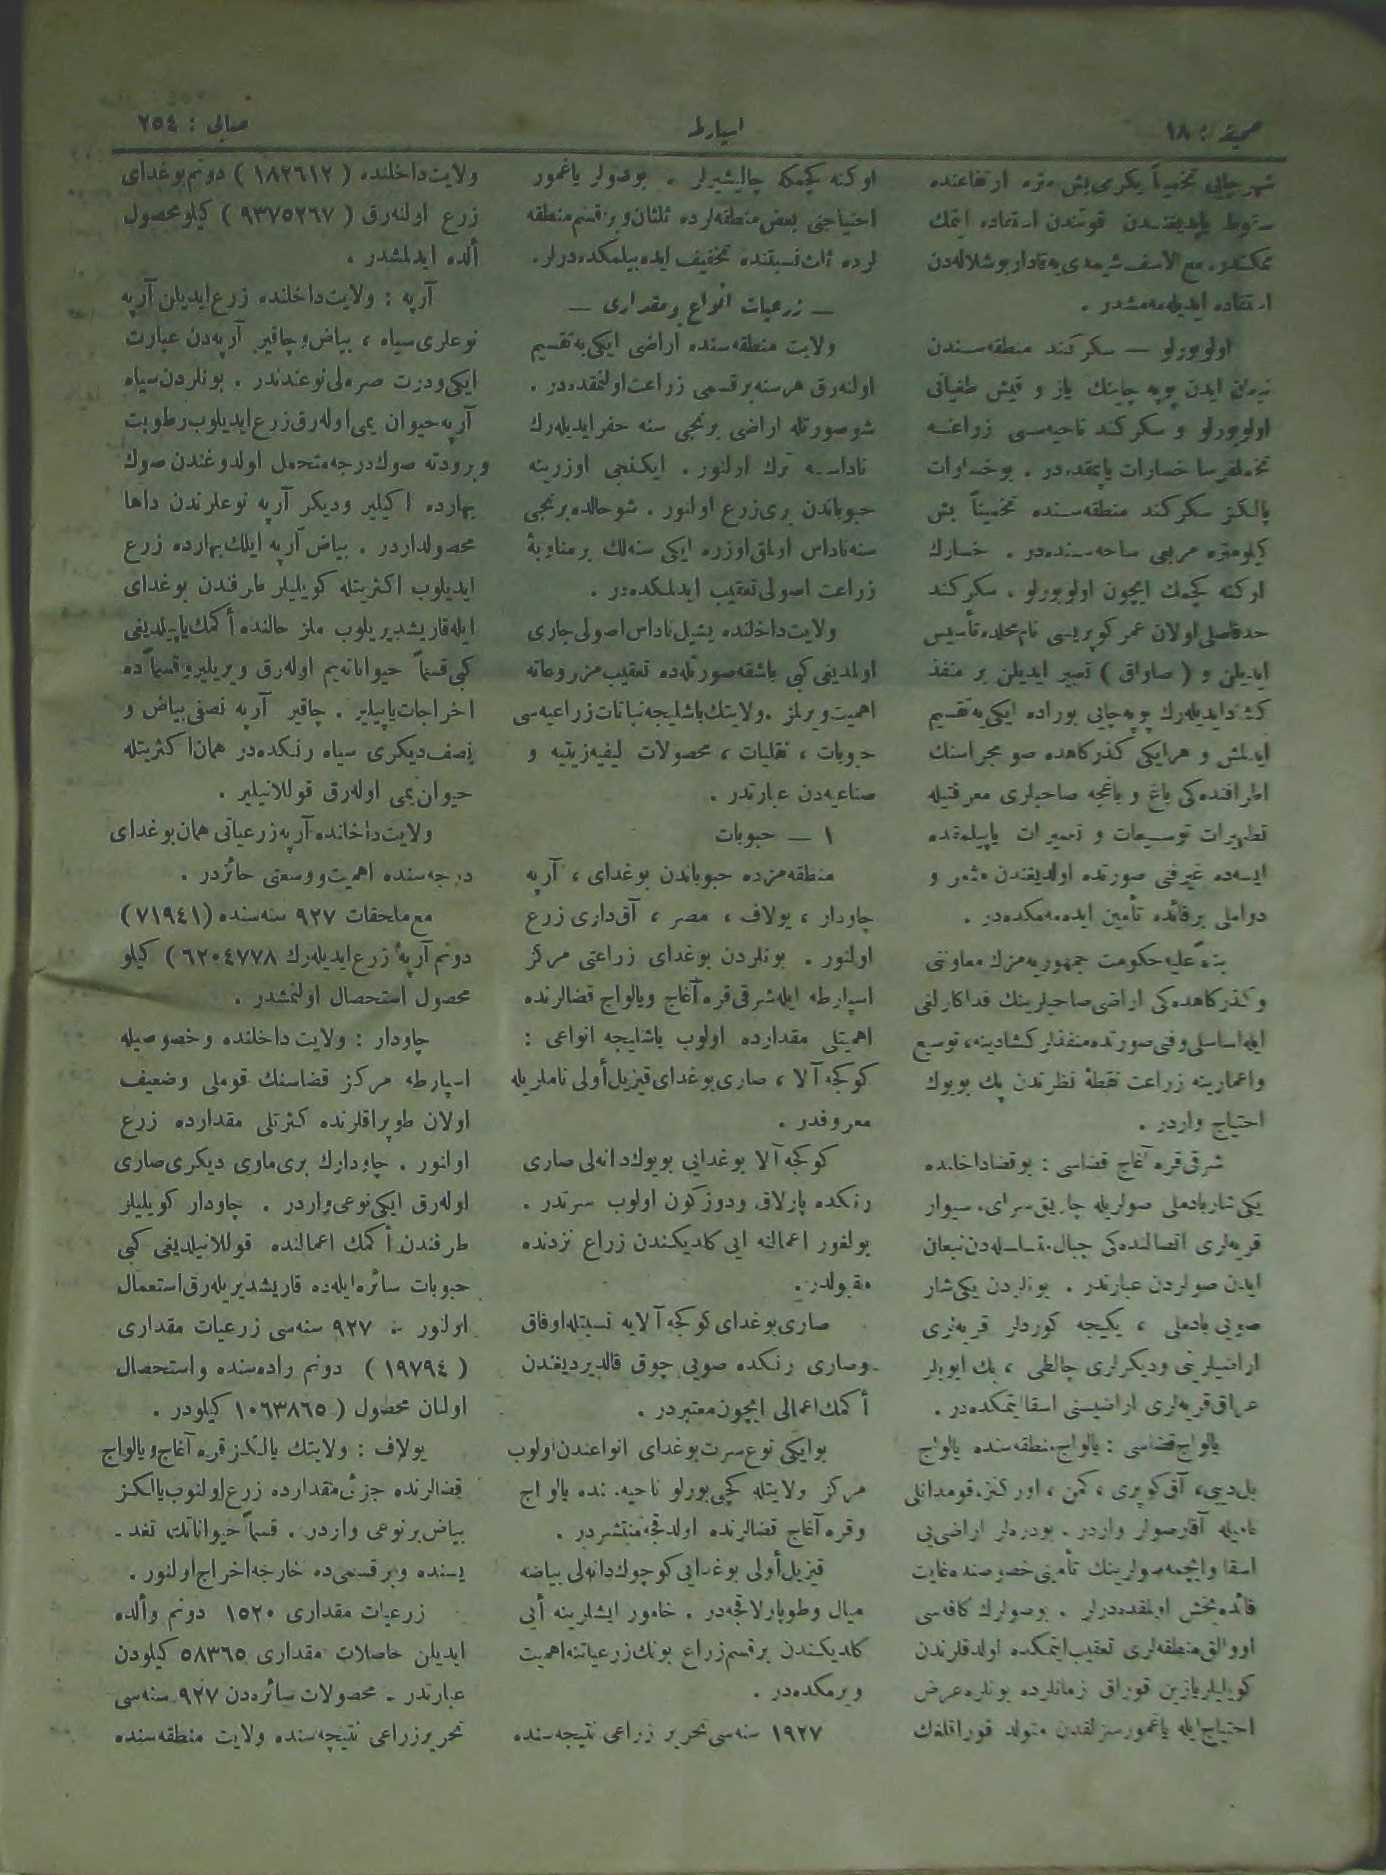 صحیفه : ١٨
اسپارطه
صالی : ٢٥٤
شهر چایی تخمیناً یکرمی بش متره ارتفاعنده
سقوط یاپدیغندن قوتندن استفاده ایتمك
ممكندر. مع الاسف شیمدی یه قادار بو شلاله دن
استفاده ایدیله مه مشدر .
اولوبورلو — سكركند منطقه سندن
نبعان ایدن پوپه چاینك یاز و قیش طغیانی
اولوبورلو و سكركند ناحیه سی زراعنه
تحملفرسا خسارات یاپمقده در . بو خسارات
یالكز سكركند منطقه سنده تخمیناً بش
كیلومتره مربعی ساحه سنده در . خسارك
اوكنه كچمك ایچون اولوبورلو . سكركند
حدفاصلی اولان عمر كوپریسی نام محلده تأسیس
ایدیلن و ( صاواق ) تعبیر ایدیلن بر منفذ
كشاد ایدیله رك پوپه چایی بوراده ایكی یه تقسیم
ایدلمش و هر ایكی كذركاهده صو مجراسنك
اطرافنده كی باغ و باغچه صاحبلری معرفتیله
تطهیرات توسیعات و تعمیرات یاپیلمقده
ایسه ده غیرفنی صورتده اولدیغندن مثمر و
دواملی بر فائده تأمین ایده مه مكده در .
بناءً علیه حكومت جمهوریه مزك معاونتی
و كذركاهده كی اراضی صاحبلرینك فداكارلغی
ایله اساسلی و فنی صورتده منفذلر كشادینه، توسیع
واعمارینه زراعت نقطۀ نظرندن پك بویوك
احتیاج واردر .
شرقی قره آغاج قضاسی : بو قضا داخلنده
یكی شار بادملی صولریله چاریق سرای، سیوار
قریه لری اتصالنده كی جبال متسلسله دن نبعان
ایدن صولردن عبارتدر . بونلردن یكی شار
صویی بادملی ، یكیجه كوردلر قریه لری
اراضیلرینی ودیكرلری چالطی ، بك ایوبلر
عراق قریه لری اراضیسنی اسقا ایتمكده در .
یالواج قضاسی : یالواج منطقه سنده یالواج
بل دبی، آق كوپری ، كمن ، اوركنز، قومدانلی
نامیله آقارصولر واردر . بودره لر اراضی یی
اسقا وایچمه صولرینك تأمینی خصوصنده غایت
فائده بخش اولمقده درلر . بوصولرك كافه سی
اووالق منطقه لری تعقیب ایتمكده اولدقلرندن
كویلیلر یازین قوراق زمانلرده بونلره عرض
احتیاج ایله یاغمورسزلقدن متولد قوراقلغك
اوكنه كچمكه چالیشیرلر . بوصولر یاغمور
احتیاجنی بعض منطقه لرده ثلثان و بر قسم منطقه
لرده ثلث نسبتنده تخفیف ایده بیلمكده درلر.
— زرعیات انواع و مقداری —
ولایت منطقه سنده اراضی ایكی یه تقسیم
اولنه رق هر سنه بر قسمی زراعت اولنمقده در .
شو صورتله اراضی برنجی سنه حفر ایدیله رك
ناداسه ترك اولنور . ایكنجی اوزرینه
حبوباتدن بری زرع اولنور . شو حالده برنجی
سنه ناداس اولمق اوزره ایكی سنه لك بر مناوبۀ
زراعت اصولی تعقیب ایدلمكده در .
ولایت داخلنده یشیل ناداس اصولی جاری
اولمدیغی كبی باشقه صورتله ده تعقیب مزروعاته
اهمیت ویرلمز . ولایتك باشلیجه نباتات زراعیه سی
حبوبات ، بقلیات ، محصولات لیفیه زیتیه و
صناعیه دن عبارتدر .
١ — حبوبات
منطقه مزده حبوباتدن بوغدای ، آرپه
چاودار ، یولاف ، مصر ، آق داری زرع
اولنور . بونلردن بوغدای زراعتی مركز
اسپارطه ایله شرقی قره آغاج و یالواج قضالرنده
اهمیتلی مقدارده اولوب باشلیجه انواعی :
كوكجه آلا ، صاری بوغدای قیزیل أولی ناملریله
معروفدر .
كوكجه آلا بوغدایی بویوك دانه لی صاری
رنكده پارلاق ودوزكون اولوب سرتدر .
بولغور اعمالنه ایی كلدیكندن زراع نزدنده
مقبولدر.
صاری بوغدای كوكجه آلایه نسبتله اوفاق
وصاری رنكده صویی چوق قالدیردیغندن
أكمك اعمالی ایچون معتبردر .
بو ایكی نوع سرت بوغدای انواعندن اولوب
مركز ولایتله كچی بورلو ناحیه سنده یالواج
وقره آغاج قضالرنده اولدقجه منتشردر .
قیزیل أولی بوغدایی كوچوك دانه لی بیاضه
میال وطوپارلاقجه در . خامور ایشلرینه أیی
كلدیكندن بر قسم زراع بونك زرعیاتنه اهمیت
ویرمكده در .
١٩٢٧ سنه سی تحریر زراعی نتیجه سنده
ولایت داخلنده ( ١٨٢٦١٢ ) دونم بوغدای
زرع اولنه رق ( ٩٣٧٥٢٦٧ ) كیلو محصول
ألده ایدلمشدر .
آرپه : ولایت داخلنده زرع ایدیلن آرپه
نوعلری سیاه ، بیاض و چاقیر آرپه دن عبارت
ایكی ودرت صره لی نوعندندر . بونلردن سیاه
آرپه حیوان یمی اوله رق زرع ایدیلوب رطوبت
و برودته صوك درجه متحمل اولدوغندن صوك
بهارده اكیلیر ودیكر آرپه نوعلرندن داها
محصولداردر . بیاض آرپه ایلك بهارده زرع
ایدیلوب اكثریتله كویلیلر طرفندن بوغدای
ایله قاریشدیریلوب ملز حالنده أكمك یاپیلدیغی
كبی قسماً حیواناته یم اوله رق ویریلیر و قسماً ده
اخراجات یاپیلیر . چاقیر آرپه نصفی بیاض و
نصف دیكری سیاه رنكده در همان اكثریتله
حیوان یمی اوله رق قوللانیلیر .
ولایت داخلنده آرپه زرعیاتی همان بوغدای
درجه سنده اهمیت و وسعتی حائزدر .
مع ملحقات ٩٢٧ سنه سنده ( ٧١٩٤١ )
دونم آرپه زرع ایدیله رك ٦٢٠٤٧٧٨ ) كیلو
محصول استحصال اولنمشدر .
چاودار : ولایت داخلنده وخصوصیله
اسپارطه مركز قضاسنك قوملی وضعیف
اولان طوپراقلرنده كثرتلی مقدارده زرع
اولنور . چاودارك بری ماوی دیكری صاری
اوله رق ایكی نوعی واردر . چاودار كویلیلر
طرفندن أكمك اعمالنده قوللانیلدیغی كبی
حبوبات سائره ایله ده قاریشدیریله رق استعمال
اولنور . ٩٢٧ سنه سی زرعیات مقداری
( ١٩٧٩٤ ) دونم راده سنده واستحصال
اولنان محصول ( ١٠٦٣٨٦٥ كیلودر .
یولاف : ولایتك یالكز قره آغاج ویالواج
قضالرنده جزئی مقدارده زرع اولنوب یالكز
بیاض بر نوعی واردر . قسماً حیواناتك تغد-
یسنده و بر قسمی ده خارجه اخراج اولنور .
زرعیات مقداری ١٥٢٠ دونم وألده
ایدیلن حاصلات مقداری ٥٨٣٦٥ كیلودن
عبارتدر . محصولات سائره دن ٩٢٧ سنه سی
تحریر زراعی نتیجه سنده ولایت منطقه سنده